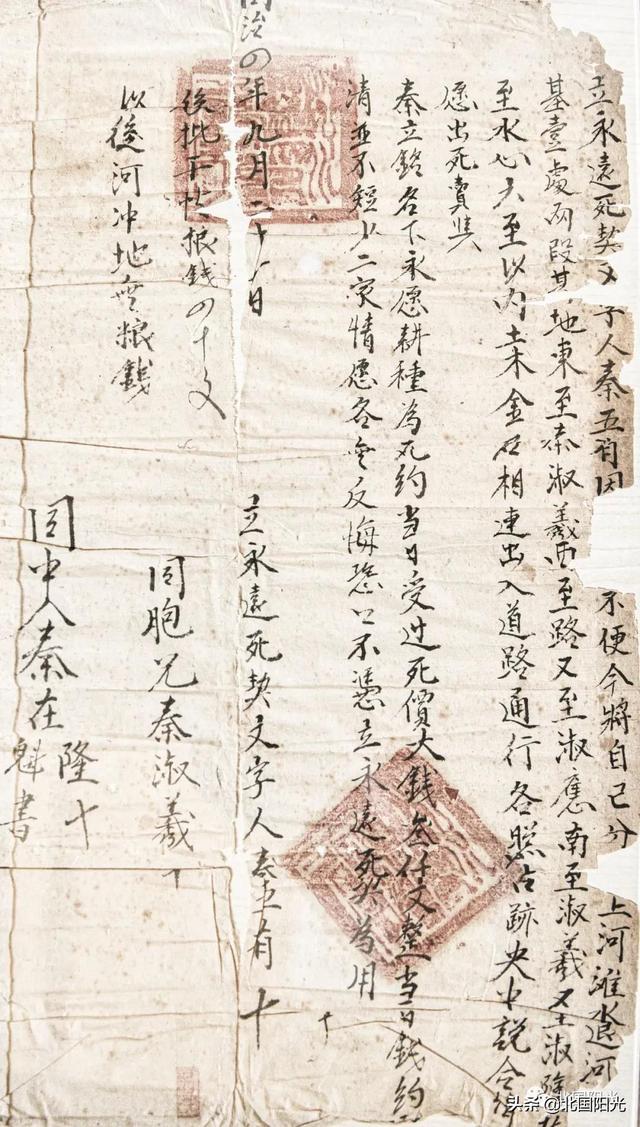 立永遠死契文 字人秦五有因 不便今將自己分 上河滩水退河
基壹處兩段其地東至秦淑羲西至路又至淑應南至淑羲又至淑
至水心六至以内土木金石相連出入道路通行各照古跡央中説合
愿出死賣與
秦立銘名下永愿耕種為死約当日受过死價大錢叁仟文整当日錢約
清並不短少二家情愿各無反悔恐口不憑立永遠死契為用
立永遠死契文字人秦五有十
同治四年九月二十 日
後批下 粮錢四十文
以後河冲地無粮錢
同胞兄秦淑羲十
同中人秦在
隆十
魁書
头条 @北国阳光
北国阳光